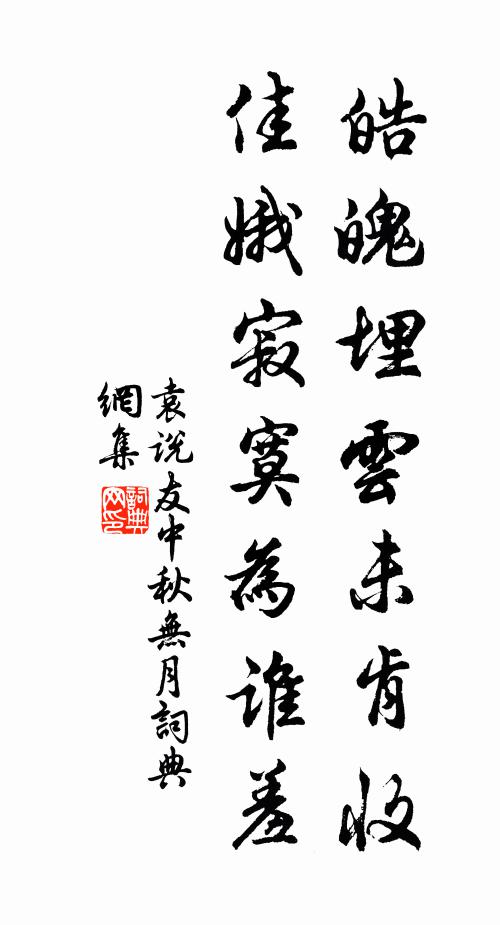 皓魄埋雲未肯收
佳娥寂寞為誰羞
袁说友中秋無月詞典
網集
詞典网印